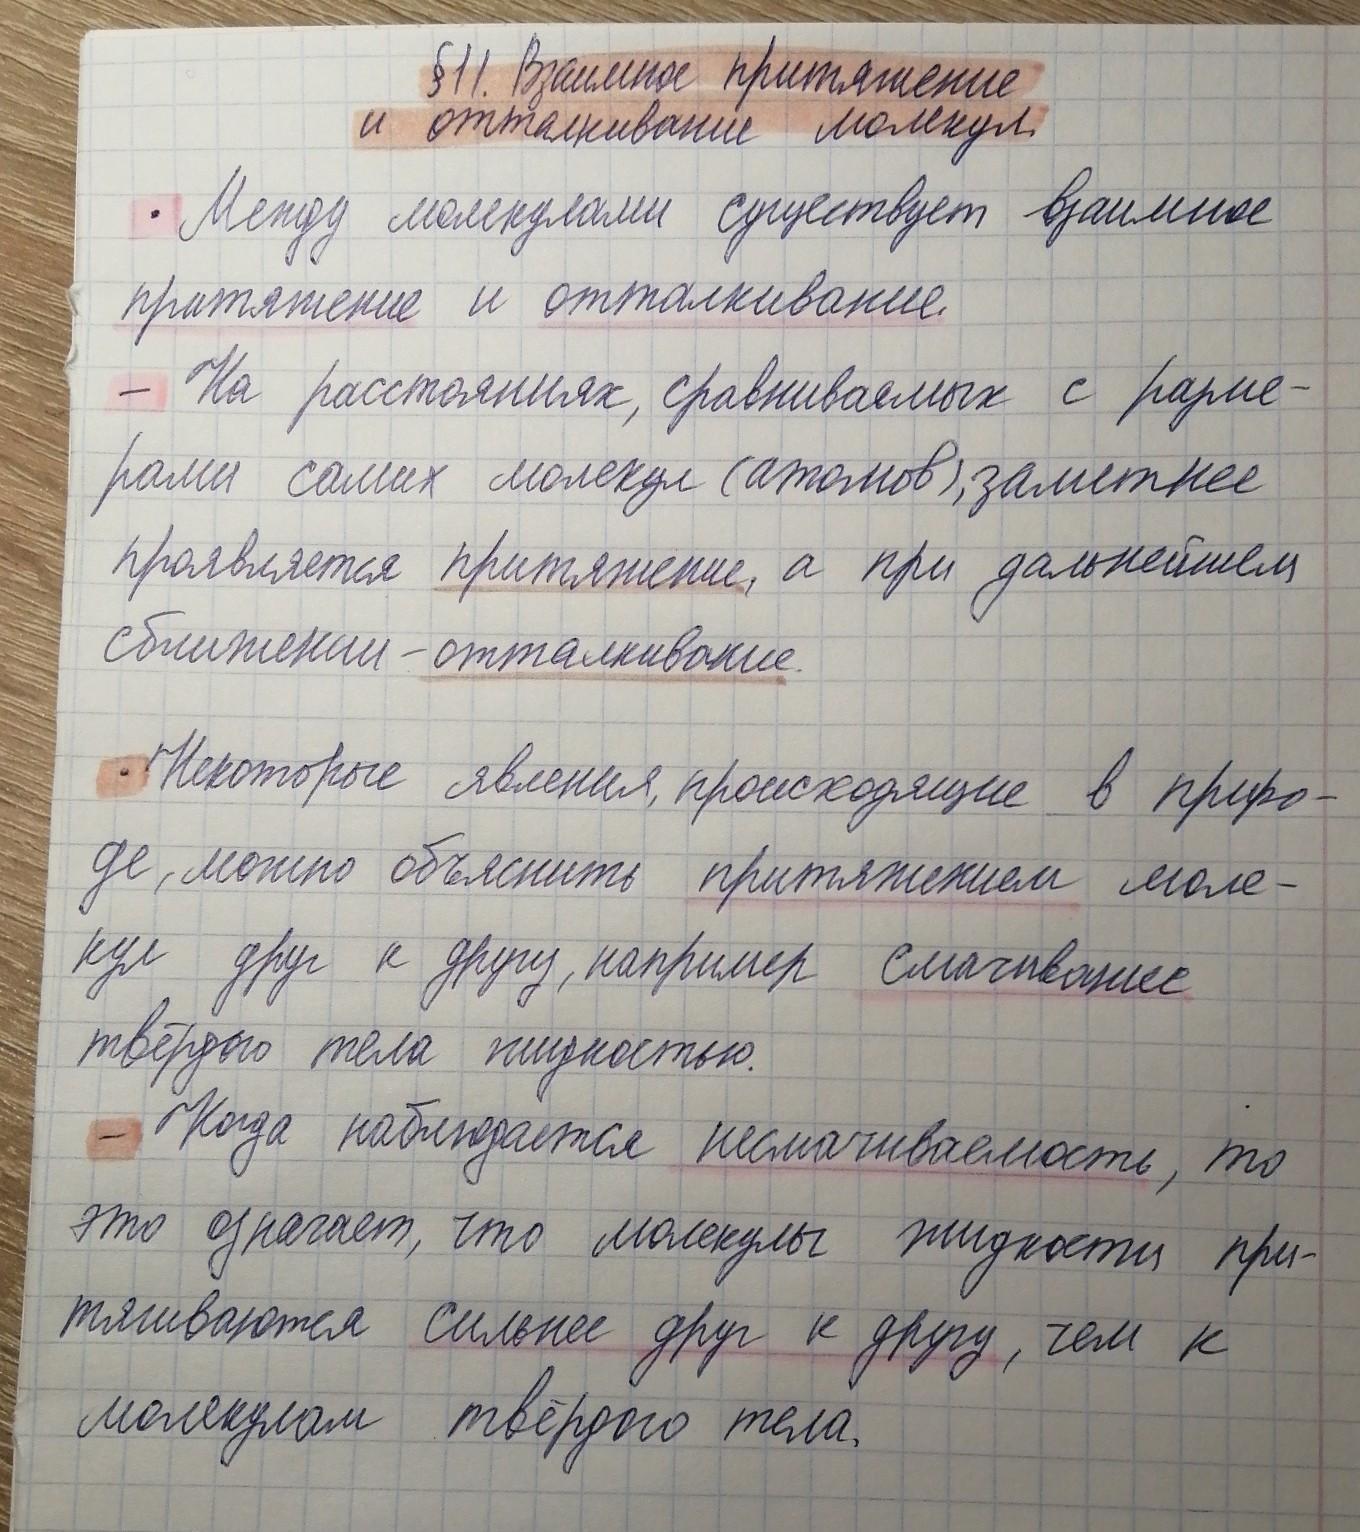 §11. Взаимное притяжение
и отталкивание молекул.
· Между молекулами существует взаимное
притяжение и отталкивание.
– На расстояниях, сравниваемых с разме-
рами самих молекул (атомов), заметнее
проявляется притяжение, а при дальнейшем
сближении – отталкивание.
· Некоторые явления, происходящие в приро-
де, можно объяснить притяжением моле-
кул друг к другу, например смачивание
твёрдого тела жидкостью.
– Когда наблюдается несмачиваемость, то
это означает, что молекулы жидкости при-
тягиваются сильнее друг к другу, чем к
молекулам твёрдого тела.